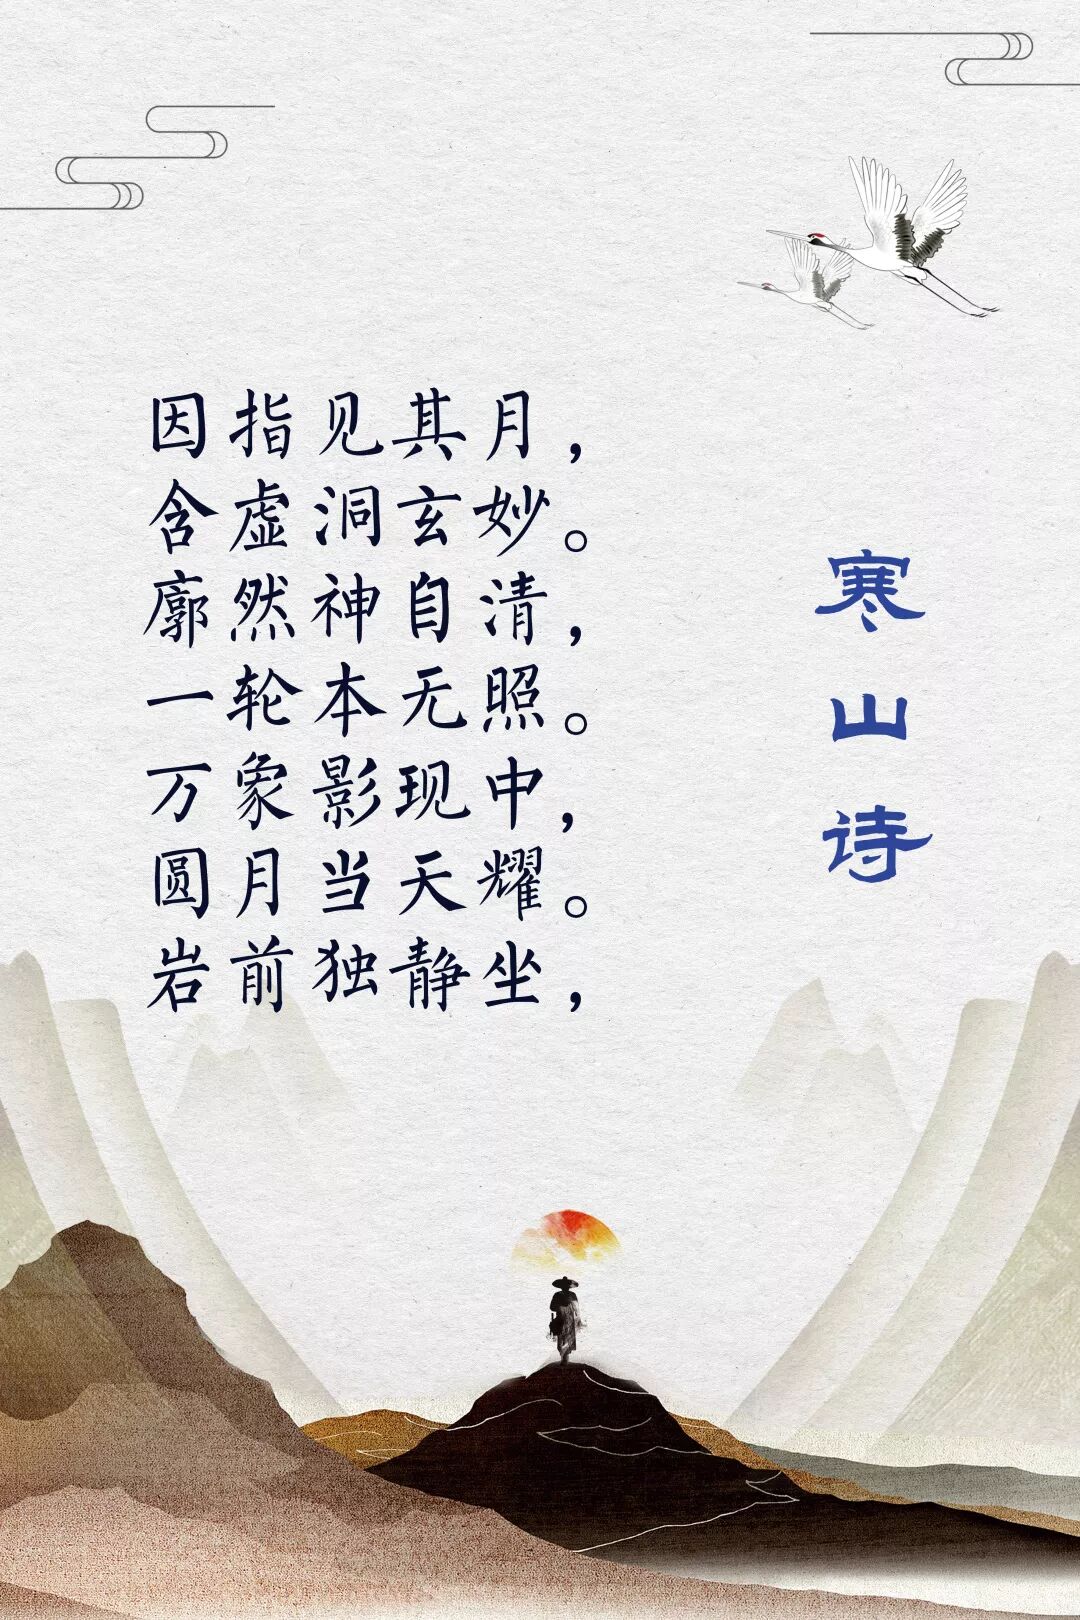 寒山诗
因指见其月，
含虚洞玄妙。
廓然神自清，
一轮本无照。
万象影现中，
圆月当天耀。
岩前独静坐，